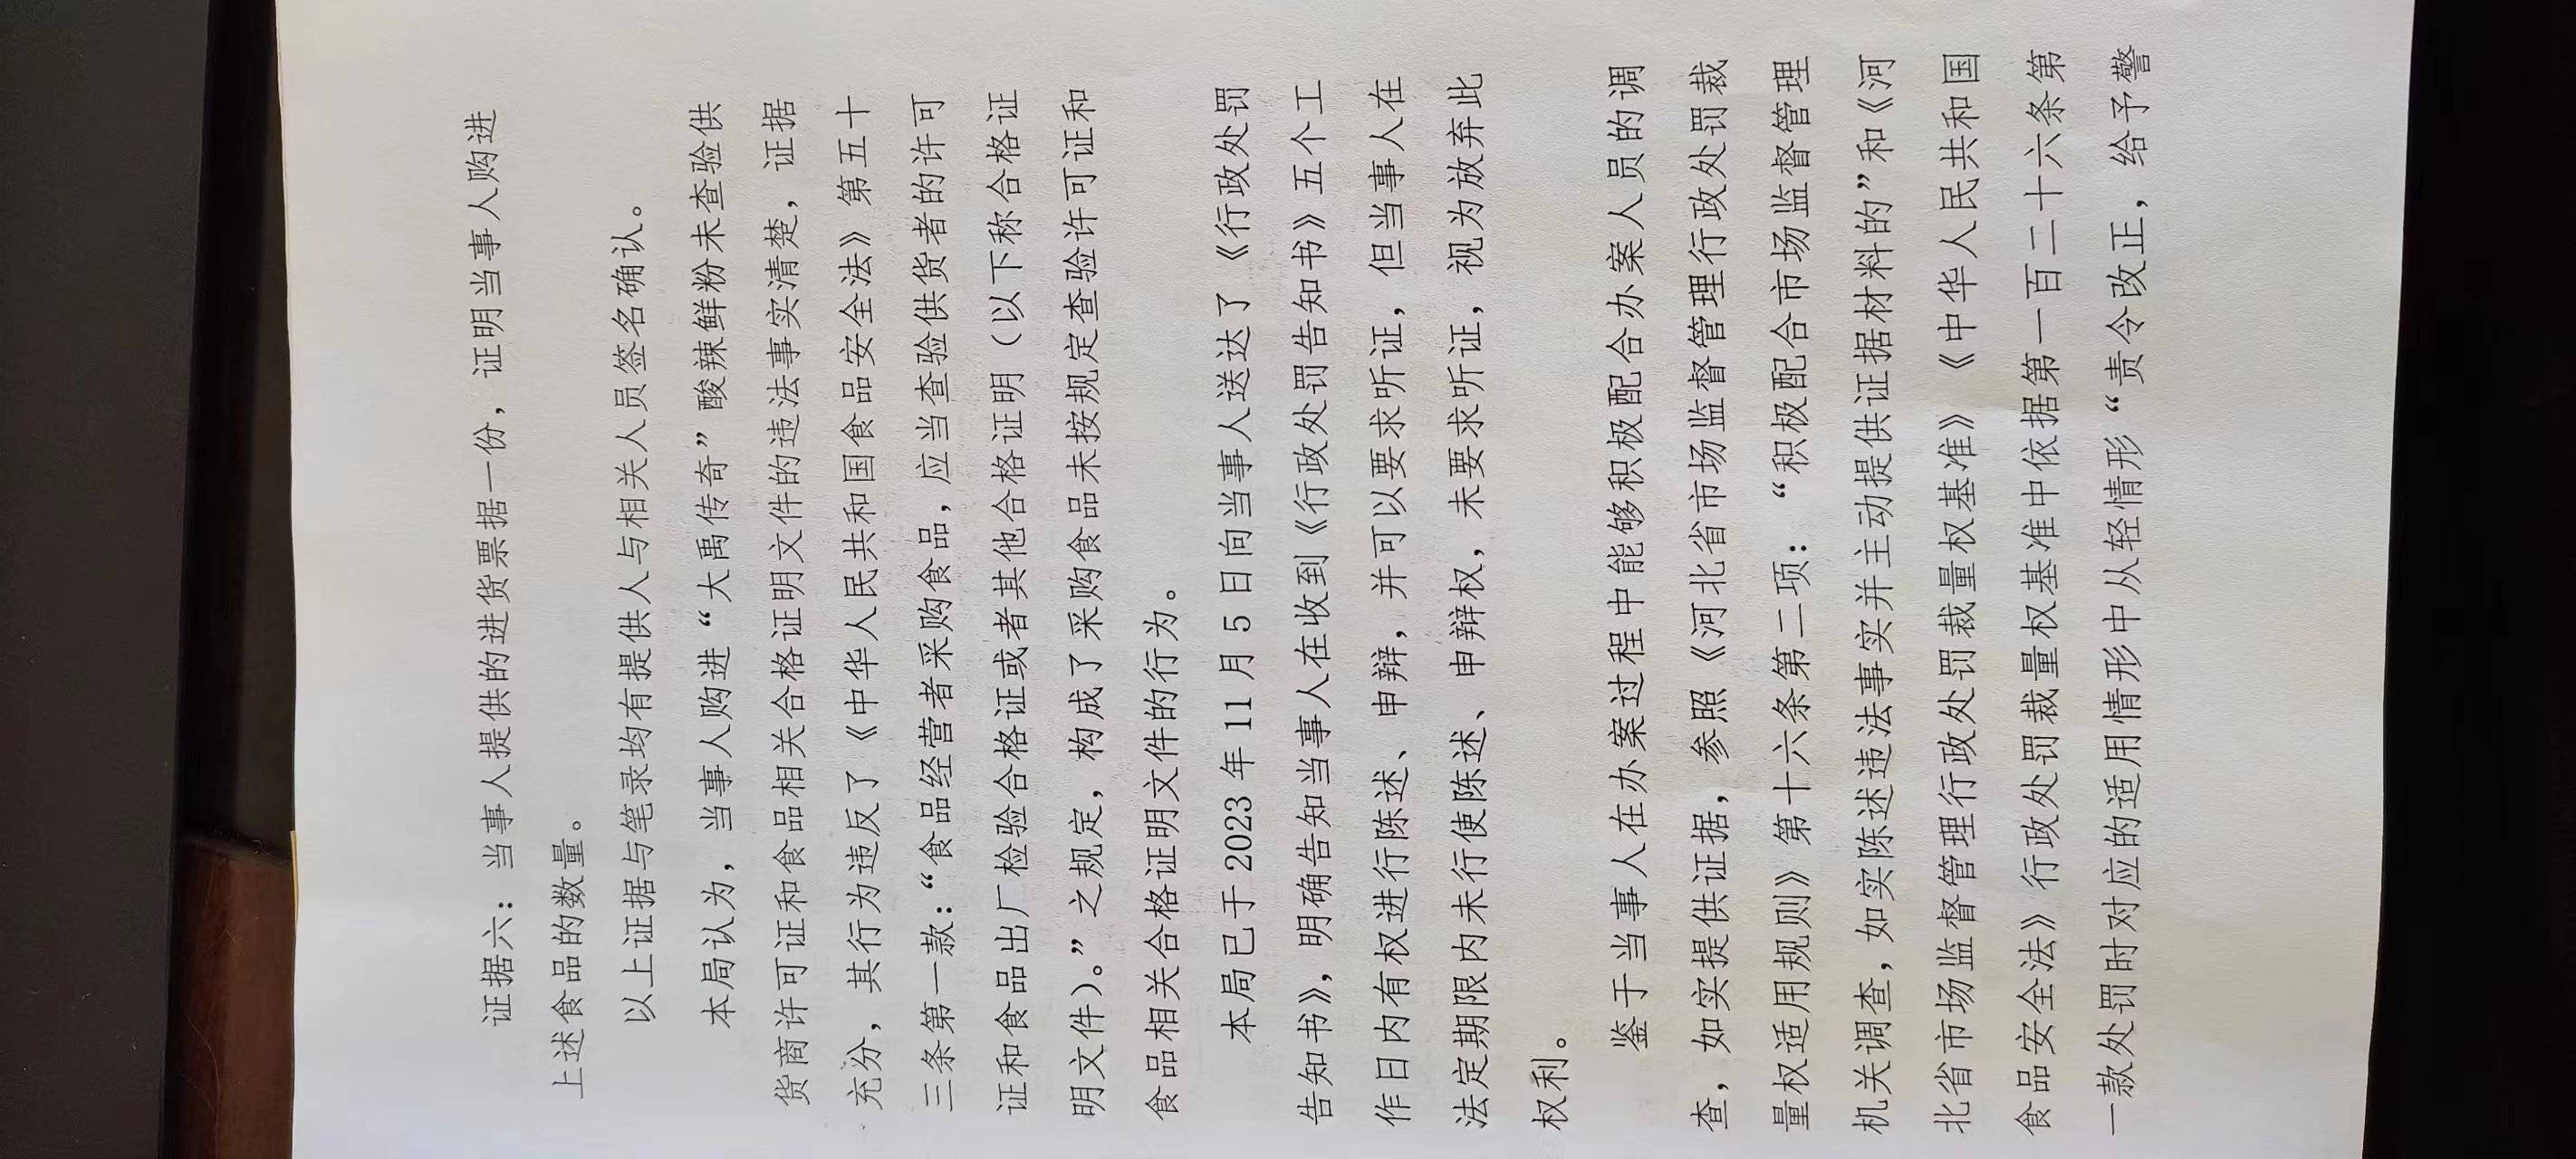 证据六：当事人提供的进货票据一份，证明当事人购进
上述食品的数量。
以上证据与笔录均有提供人与相关人员签名确认。
本局认为，当事人购进“大禹传奇”酸辣鲜粉未查验供
货商许可证和食品相关合格证明文件的违法事实清楚，证据
充分，其行为违反了《中华人民共和国食品安全法》第五十
三条第一款：“食品经营者采购食品，应当查验供货者的许可
证和食品出厂检验合格证或者其他合格证明（以下称合格证
明文件）。”之规定，构成了采购食品未按规定查验许可证和
食品相关合格证明文件的行为。
本局已于 2023 年 11 月 5 日向当事人送达了《行政处罚
告知书》，明确告知当事人在收到《行政处罚告知书》五个工
作日内有权进行陈述、申辩，并可以要求听证，但当事人在
法定期限内未行使陈述、申辩权，未要求听证，视为放弃此
权利。
鉴于当事人在办案过程中能够积极配合办案人员的调
查，如实提供证据，参照《河北省市场监督管理行政处罚裁
量权适用规则》第十六条第二项：“积极配合市场监督管理
机关调查，如实陈述违法事实并主动提供证据材料的”和《河
北省市场监督管理行政处罚裁量权基准》《中华人民共和国
食品安全法》行政处罚裁量权基准中依据第一百二十六条第
一款处罚时对应的适用情形中从轻情形“责令改正，给予警